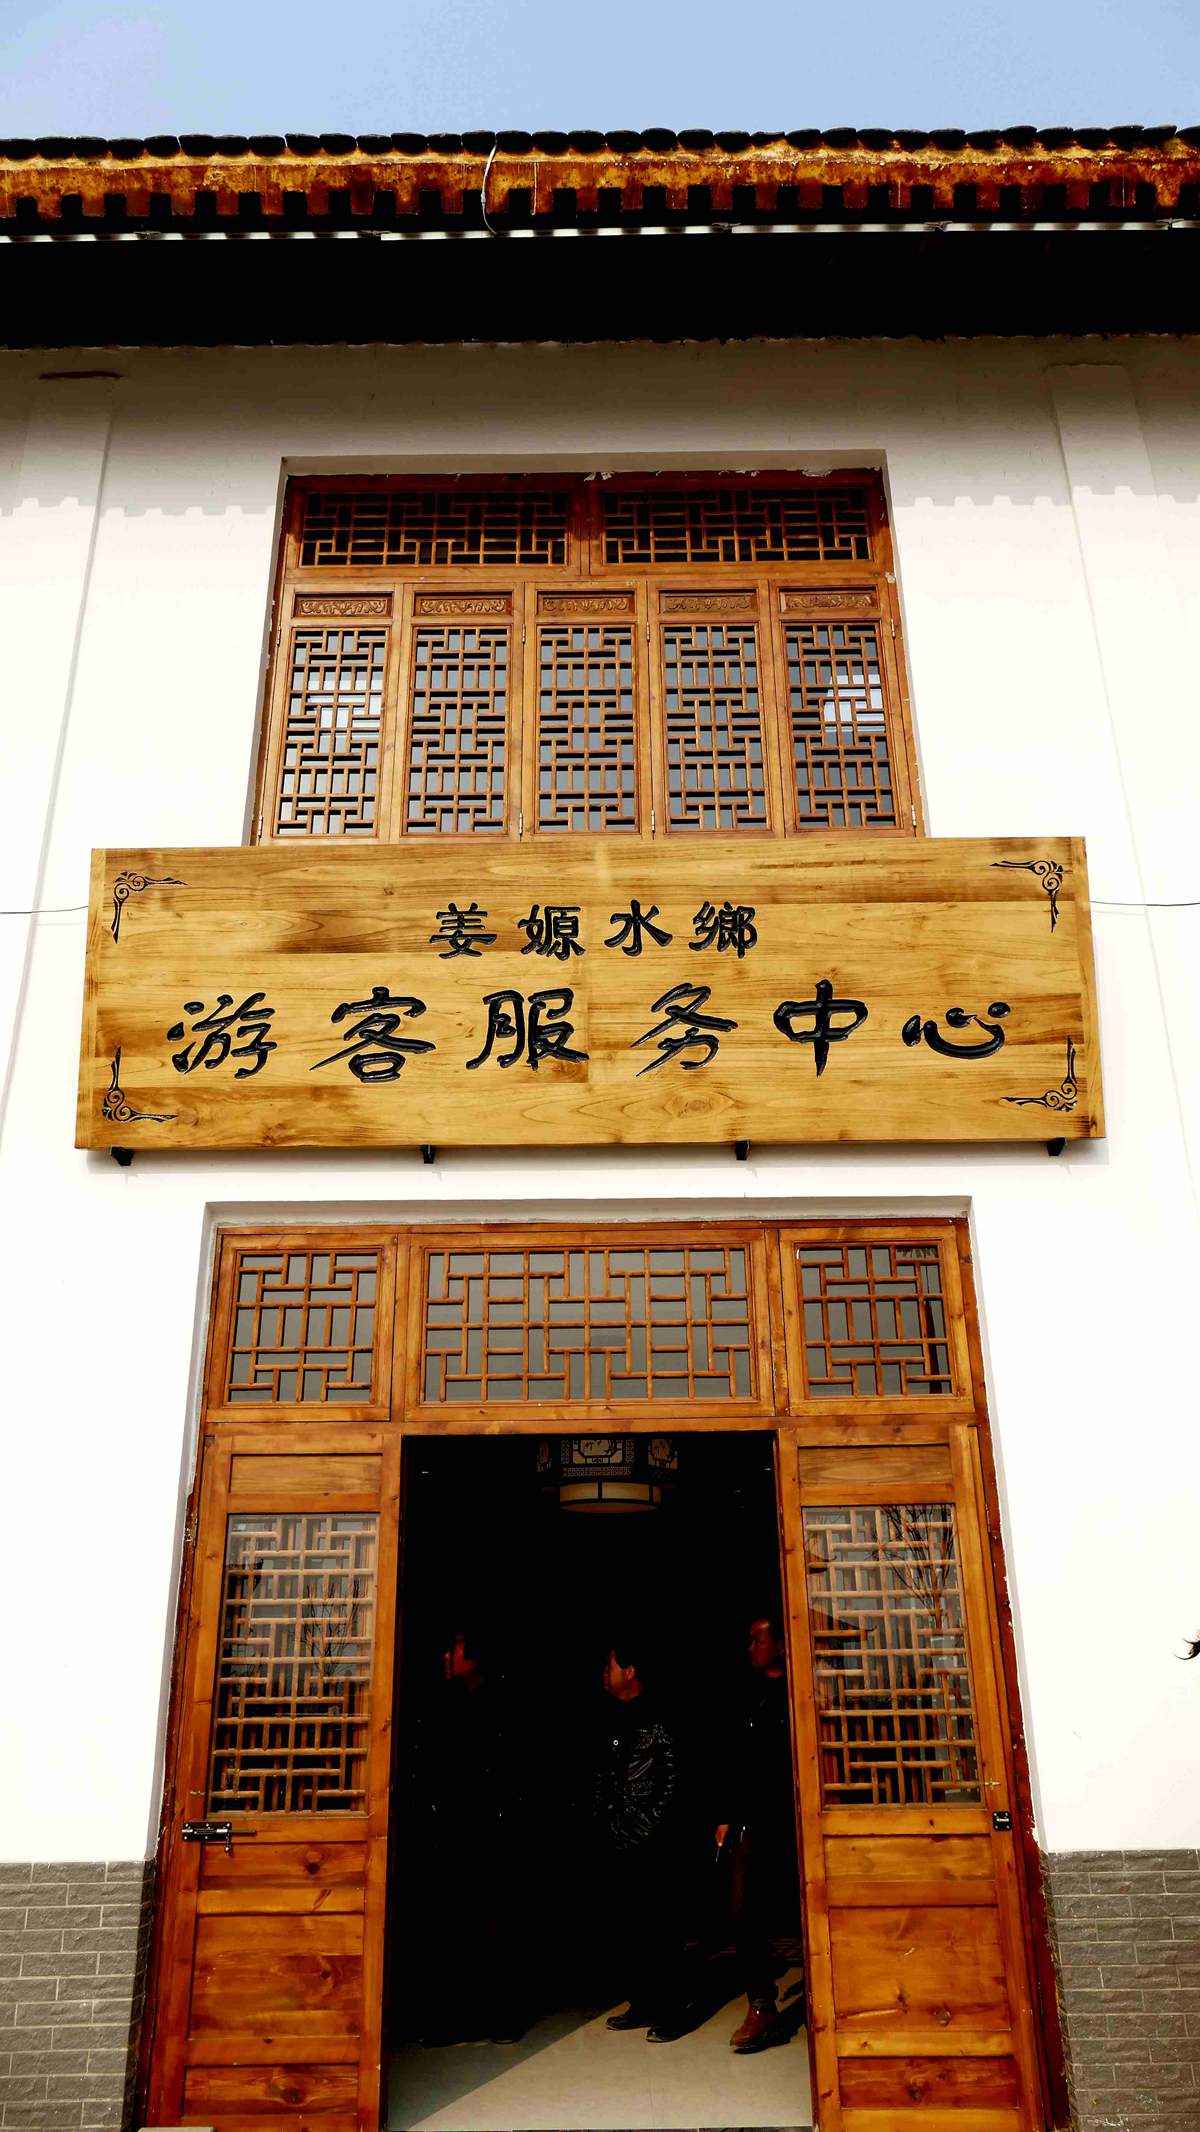 姜嫄水鄉
游客服务中心